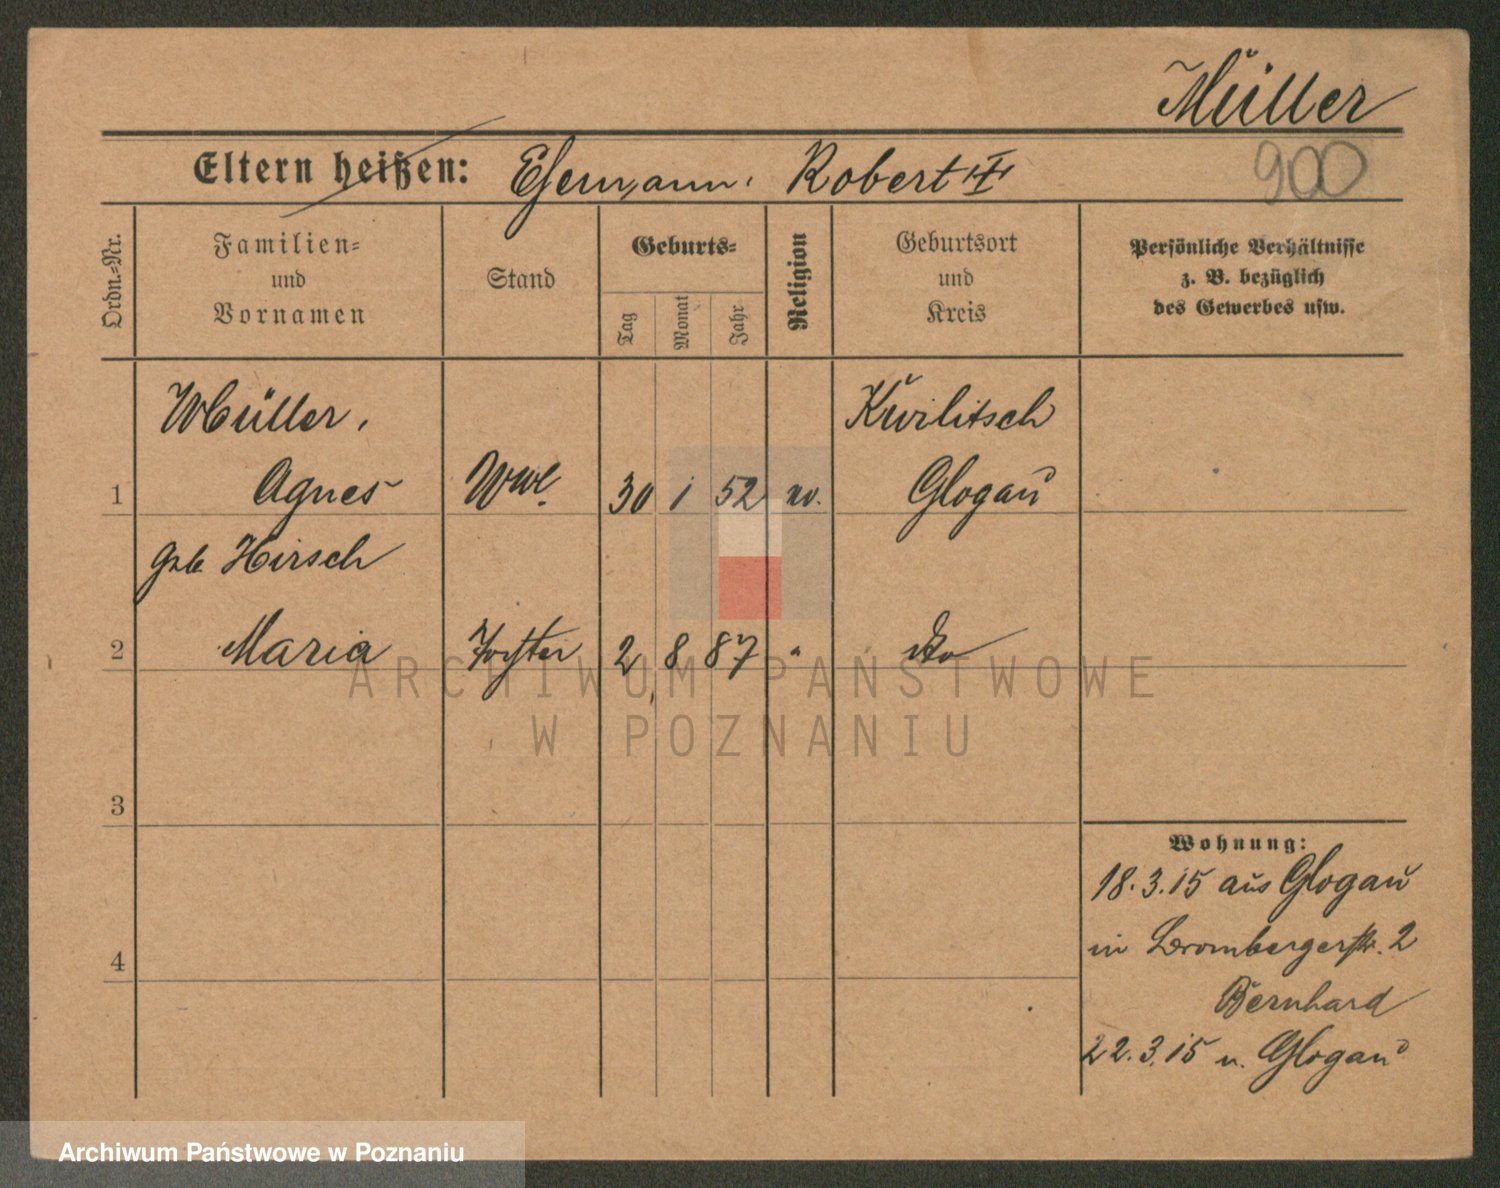 Müller
Eltern heißen: Ehemann: Robert
900
Ordn.-Nr.
Familien-
und
Vornamen
Stand
Geburts-
Tag
Monat
Jahr
Religion
Geburtsort
und
Kreis
Persönliche Verhältnisse
z. B. bezüglich
des Gewerbes usw.
Müller,
Kwilitsch
1 Agnes Wwe. 30 1 52 ev. Glogau
geb Hirsch
2 Maria Tochter 2 8 87 " dto
3
Wohnung:
18.3.15 aus Glogau
in Brombergerstr. 2
4
Bernhard
22.3.15 n. Glogau
ARCHIWUM PAŃSTWOWE
W POZNANIU
Archiwum Państwowe w Poznaniu